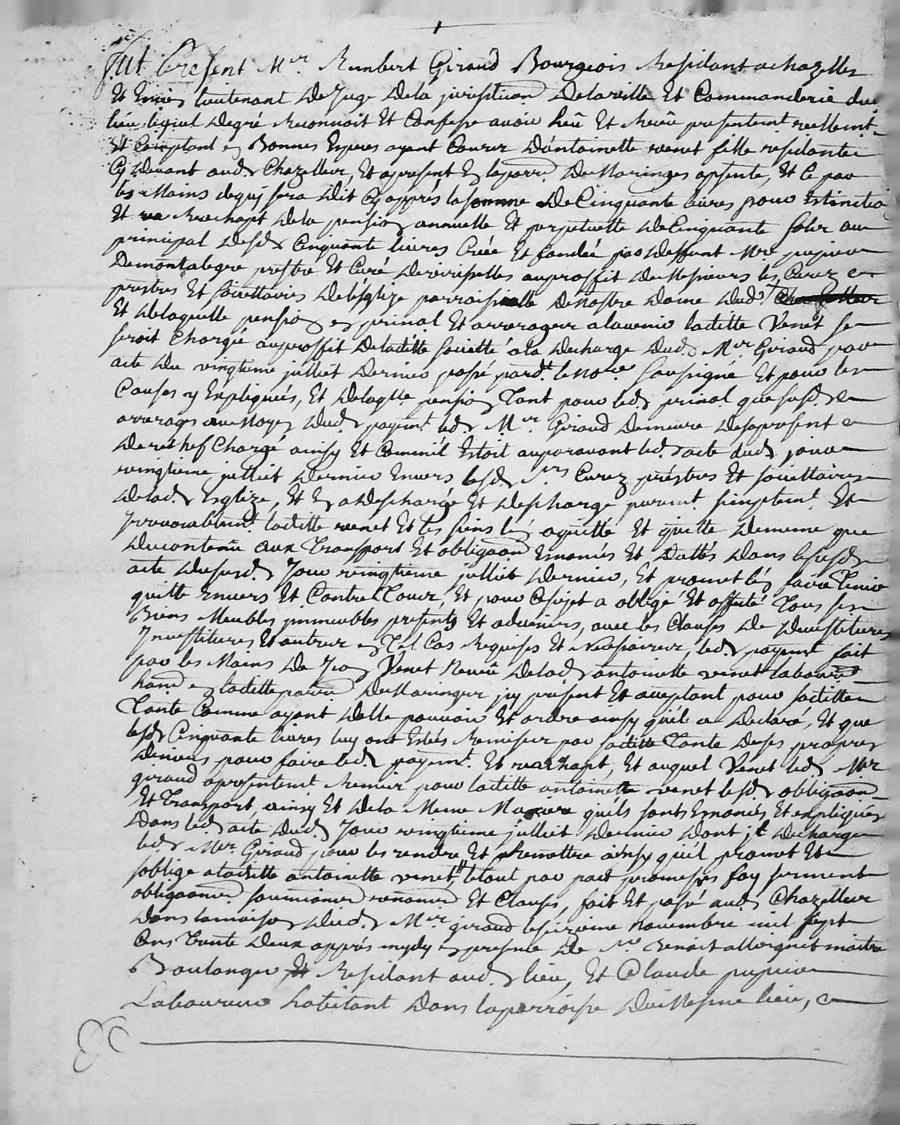 Fut Present Mer Rambert Giraud Bourgeois Residant a chazelles
Et lieutenant De Juge Dela jurisdition Delaville Et Commanderie du
lieu lequel Degré Reconnoit Et Confesse avoir heü Et Receü presentemt reellemt
Et Comptant en Bonnes Especes ayant Cours D'antoinette venet fille residante
Cy Devant aud. Chazelles, Et apresent En laparr. De Maringes absente, Et Ce par
les Mains dequy sera Dit Cy apprés la somme De Cinquante livres pour Extinction
Et Rachapt Dela pension annuelle Et perpetuelle De Cinquante solz au
principal Desd. Cinquante livres Créée Et fondée par Deffunt Mre
Demontalegre prestre Et Curé auproffit De Messieurs les Curez et
prestres Et societtaires De l'Eglize parroissialle De Nostre Dame Dud.
Et Delaquelle pension en prinal Et arrerages alavenir laditte Venet se
seroit Chargée auproffit De laditte societté a la Decharge Dud. Mer Giraud par
acte Du vingtieme juillet Dernier passé pardt le nore soussigné Et pour les
Causes y Expliqueés, Et Delaqlle pension Tant pour led. prinal que susd.
arrerages aumoyen Dud. payemt led. Mer Giraud Demeure Desapresent
Derechef Chargé ainsy Et Comme il Estoit auparavant led. acte dud. jour
vingtieme juillet Dernier Envers lesd. srs Curez prestres Et societtaires
Delad. Esglize, Et En a Deschargé Et Descharge puremt simplemt Et
Irrevocablemt laditte venet Et les siens l'en aquitte Et quitte Demême que
Ducontenü aux Transport Et obligaon Enoncés Et Dattés Dans lesusd.
acte Dususd. Jour vingtieme juillet Dernier, Et promet les faire Tenir
quitte Envers Et Contre Tous, Et pour Cesujet a obligé Et affecté Tous ses
Biens Meubles immeubles presents Et advenirs, avec les Clauses De Devestitures
Investitures Et autres En Tel Cas Requises Et Necessaires, led. payemt fait
par les Mains De Jean Venet Neveü Delad. antoinette venet
en laditte parr. De Maringes icy present Et acceptant pour laditte
Tante Comme ayant Delle pouvoir Et ordre ainsy qu'il a Declaré, Et que
lesd. Cinquante livres luy ont Estés Remises par laditte Tante De ses propres
Deniers pour faire led. payemt Et rachapt, Et auquel Venet led. Mer
giraud a presentemt Remis pour laditte antoinette venet lesd. obligaon
Et Transport ainsy Et De la Meme Maniere quils sont Enoncés Et expliqués
Dans led. acte Dud. Jour vingtieme juillet Dernier Dont il Decharge
led. Mer Giraud pour les rendre Et Remettre ainsy quil promet Et
soblige a laditte antoinette venet, letout par pact promesses foy serment
obligaons soumissions renonons Et Clauses, fait Et passé aud. Chazelles
Dans lamaison Dud. Mer giraud le sixieme Novembre mil sept
Cens Trente Deux apprés mydy En presence De Me Benoist maître
Boulanger Residant aud. lieu, Et Claude
Laboureur habitant Dans laparroisse Du Mesme lieu,